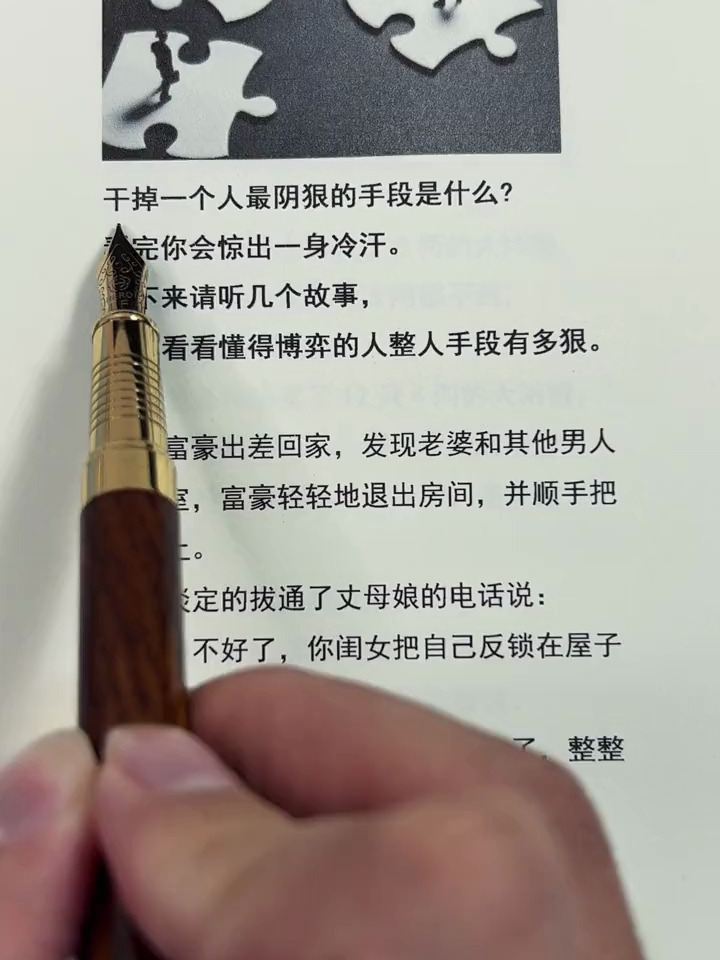 干掉一个人最阴狠的手段是什么?
完你会惊出一身冷汗。
下来请听几个故事,
看看懂得博弈的人整人手段有多狠。
富豪出差回家，发现老婆和其他男人
室，富豪轻轻地退出房间，并顺手把
上。
淡定的拔通了丈母娘的电话说：
不好了，你闺女把自己反锁在屋子
了，整整